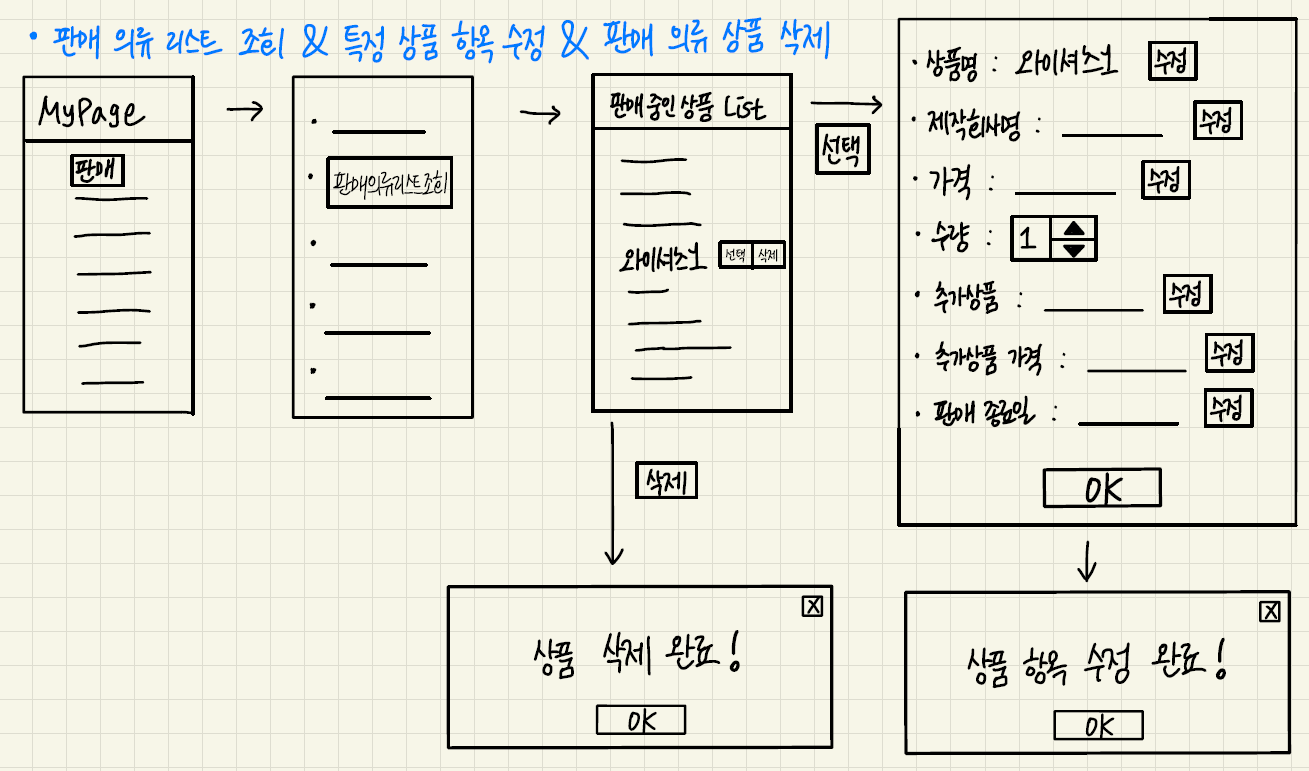 • 판매 의류 리스트 조회 & 특정 상품 항목 수정 & 판매 의류 상품 삭제
MyPage
판매
판매의류리스트조회
판매 중인 상품 List
와이셔츠1 선택 삭제
선택
삭제
• 상품명 : 와이셔츠1 수정
• 제작회사명 : 수정
• 가격 : 수정
• 수량 : 1 ▲▼
• 추가상품 : 수정
• 추가상품 가격 : 수정
• 판매 종료일 : 수정
OK
X
상품 삭제 완료!
OK
X
상품 항목 수정 완료!
OK